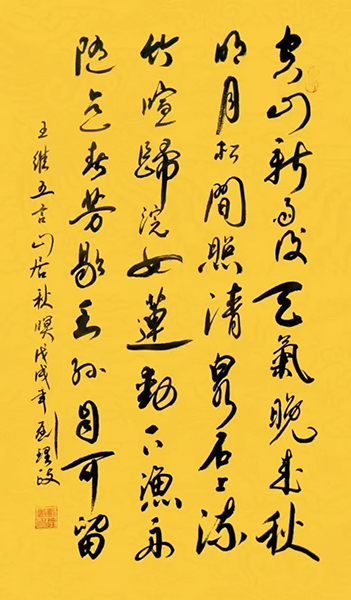 空山新雨後天氣晚來秋
明月松間照清泉石上流
竹喧歸浣女蓮動下漁舟
隨意春芳歇王孫自可留
王維五言山居秋暝戊戌年